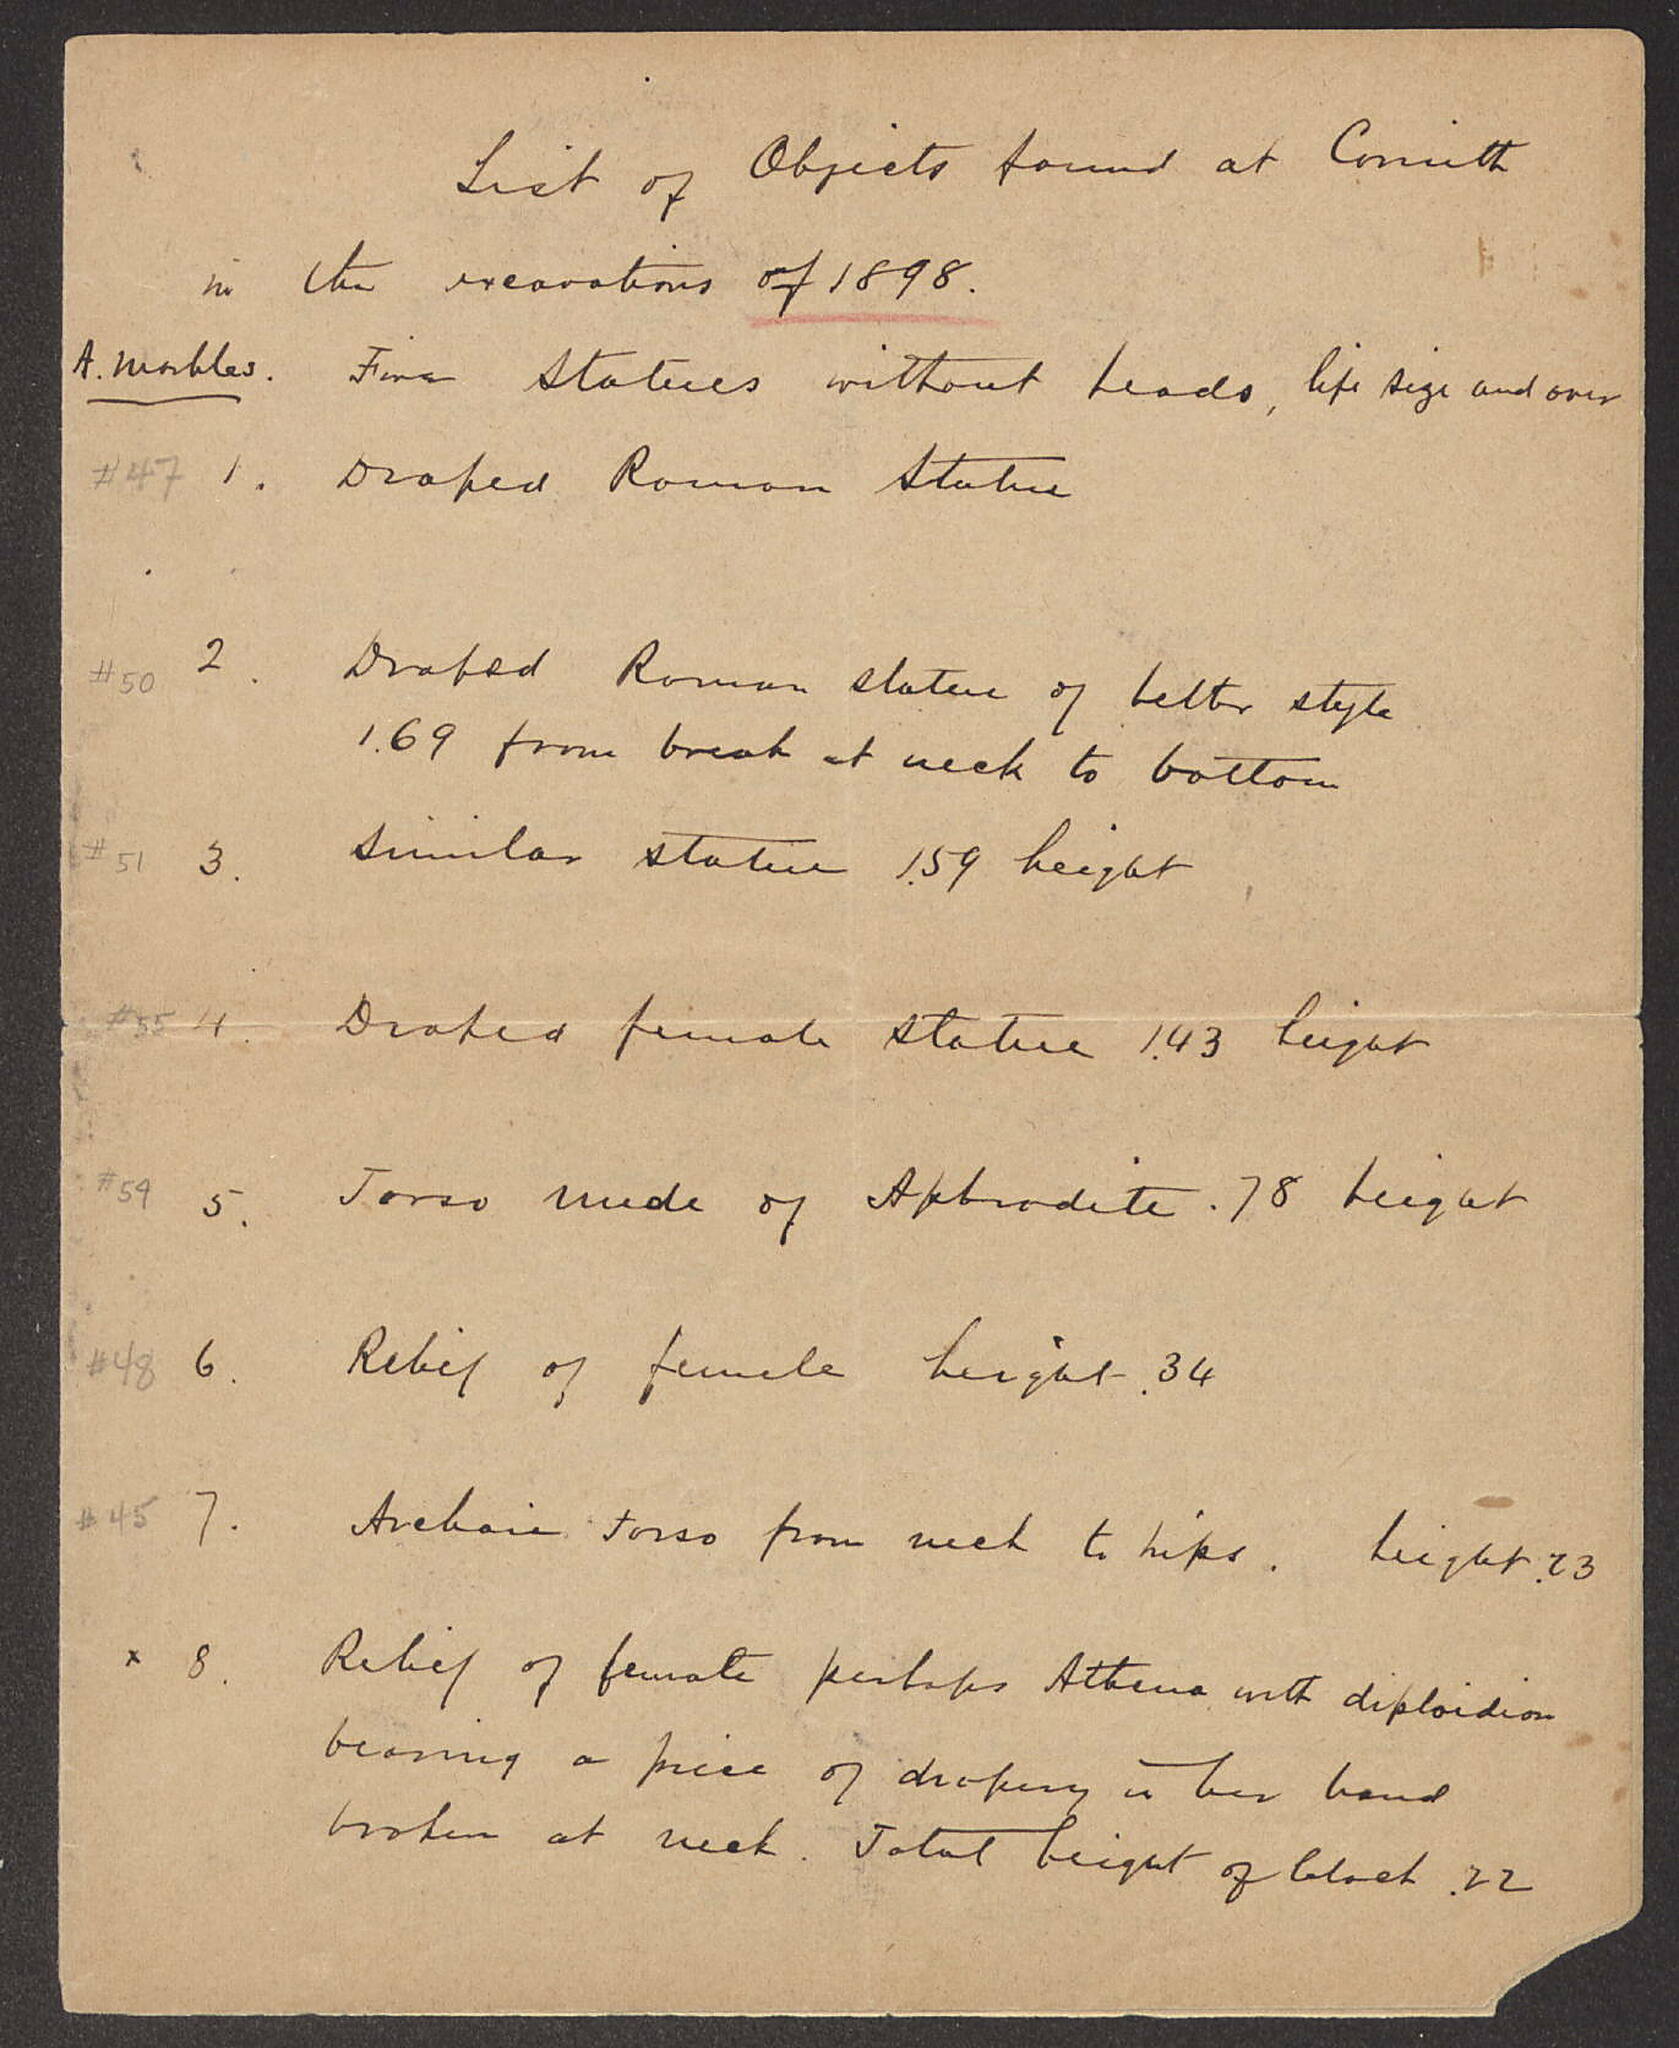 List of Objects found at Corinth
in the excavations of 1898.
A. Marbles. Five statues without heads, life size and over
#47 1. Draped Roman Statue
#50 2. Draped Roman statue of better style
1.69 from break at neck to bottom
#51 3. Similar statue 1.59 height
#55 4. Draped female statue 1.43 height
#59 5. Torso nude of Aphrodite .78 height
#48 6. Relief of female height .34
#45 7. Archaic Torso from neck to hips. height .23
x 8. Relief of female perhaps Athena with diploidion
bearing a piece of drapery in her hand
broken at neck. Total height of block .22